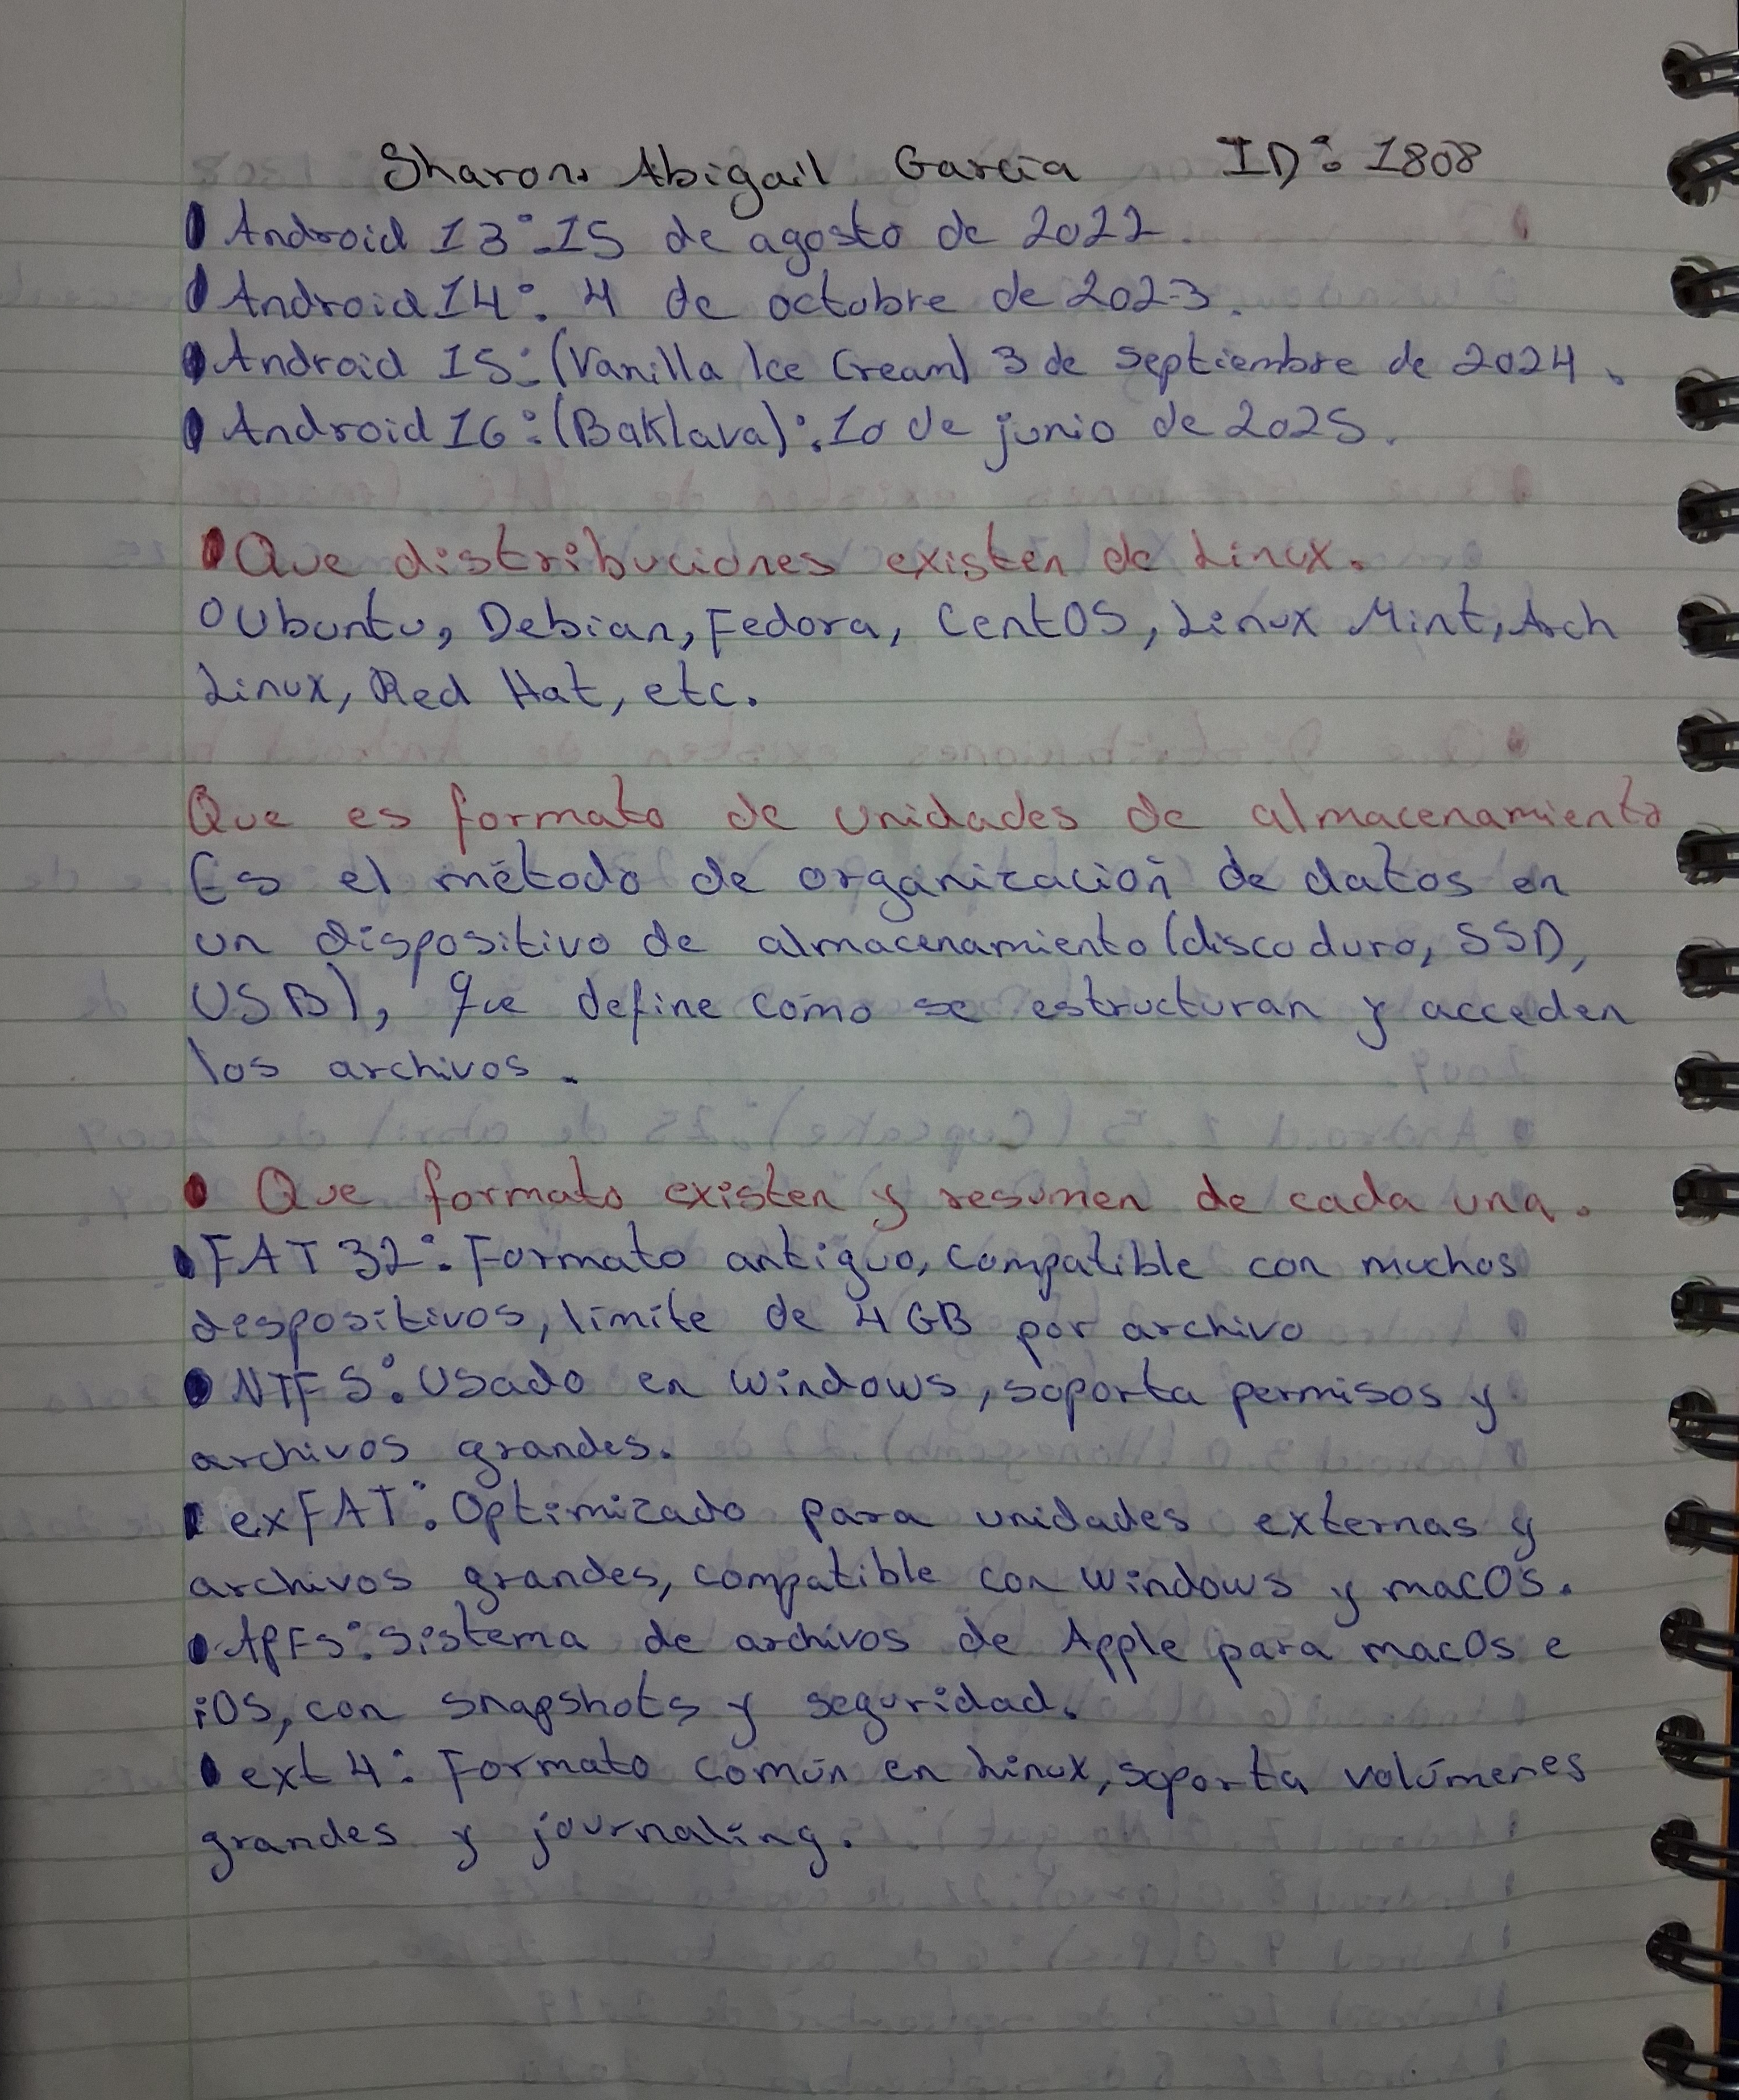 Sharon Abigail García ID: 1808
Android 13: 15 de agosto de 2022.
Android 14: 4 de octubre de 2023.
Android 15: (Vanilla Ice Cream) 3 de septiembre de 2024.
Android 16: (Baklava): 10 de junio de 2025.
Que distribuciones existen de Linux.
Ubuntu, Debian, Fedora, CentOS, Linux Mint, Arch
Linux, Red Hat, etc.
Que es formato de unidades de almacenamiento
Es el método de organización de datos en
un dispositivo de almacenamiento (disco duro, SSD,
USB), que define cómo se estructuran y acceden
los archivos.
Que formato existen y resumen de cada una.
FAT 32: Formato antiguo, compatible con muchos
despositivos, límite de 4 GB por archivo
NTFS: Usado en Windows, soporta permisos y
archivos grandes.
exFAT: Optimizado para unidades externas y
archivos grandes, compatible con Windows y macOS.
APFS: Sistema de archivos de Apple para macOs e
iOS, con snapshots y seguridad.
ext 4: Formato común en Linux, soporta volúmenes
grandes y journaling.